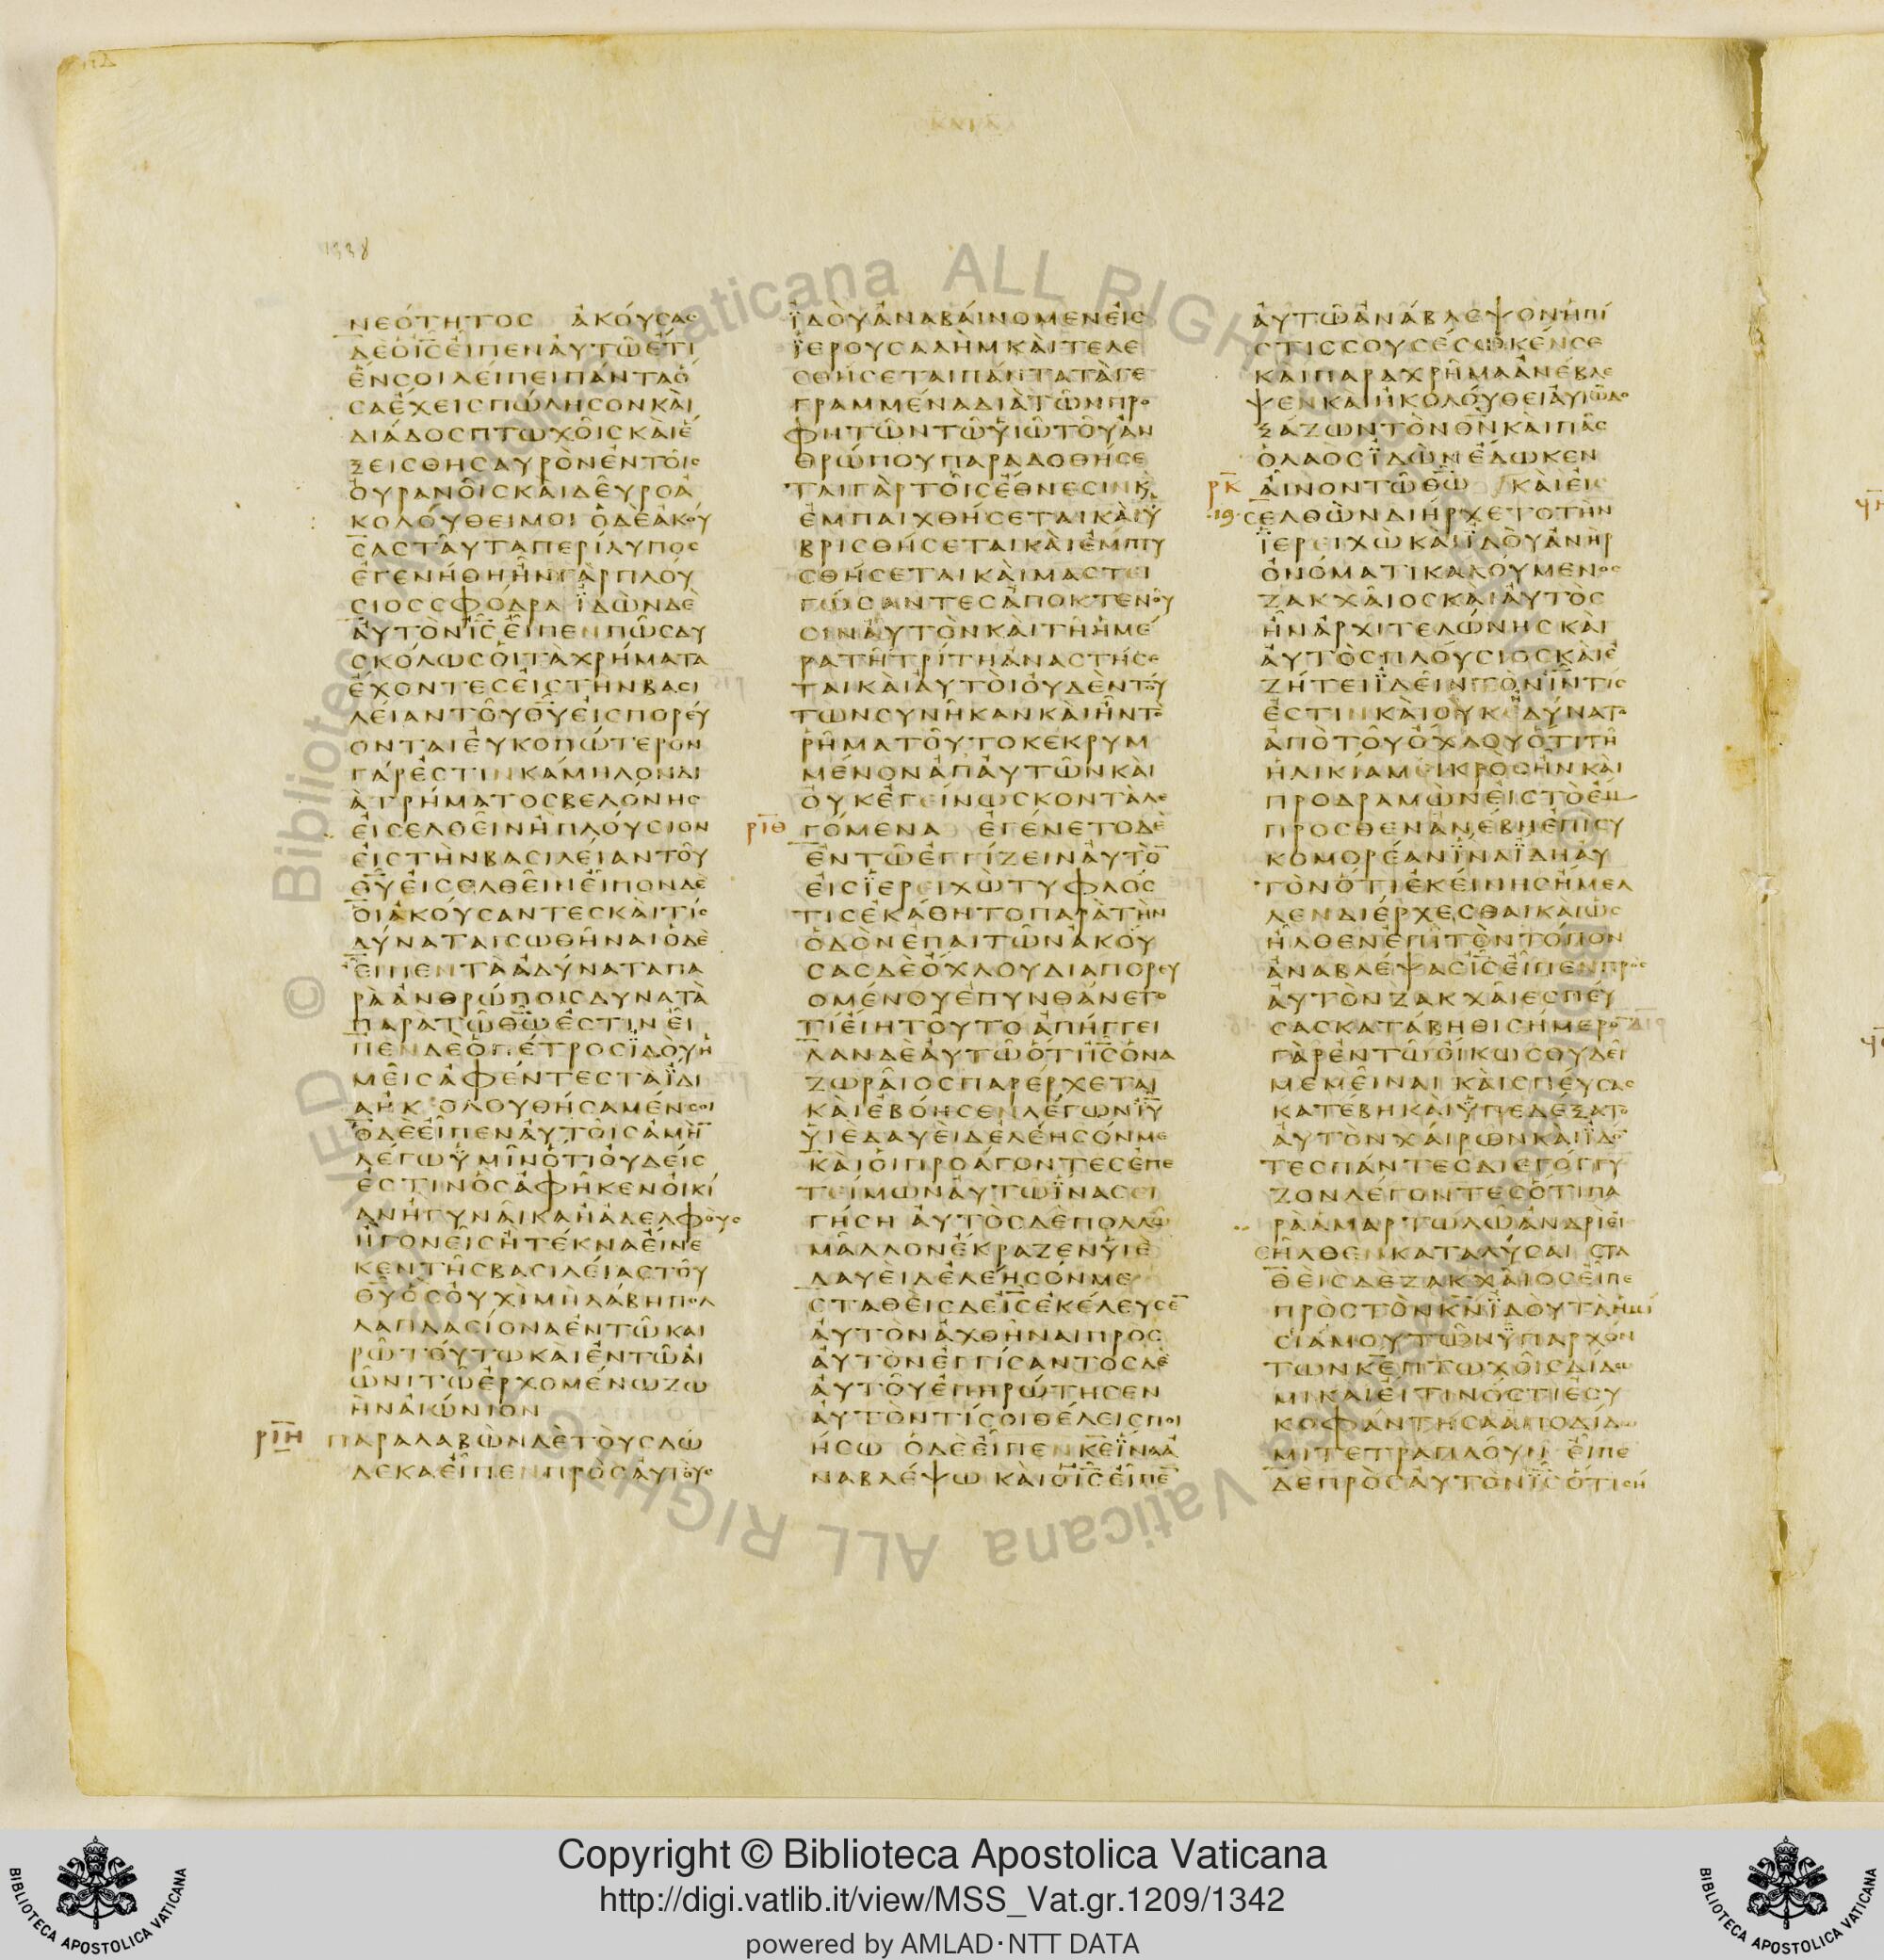 1338
ΝΕΟΤΗΤΟΣ ΑΚΟΥΣΑΣ
ΔΕΟΙ̅Σ̅ΕΙΠΕΝΑΥΤΩΕΤΙ
ΕΝΣΟΙΛΕΙΠΕΙΠΑΝΤΑΟ
ΣΑΕΧΕΙΣΠΩΛΗΣΟΝΚΑΙ
ΔΙΑΔΟΣΠΤΩΧΟΙΣΚΑΙΕ
ΞΕΙΣΘΗΣΑΥΡΟΝΕΝΤΟΙΣ
ΟΥΡΑΝΟΙΣΚΑΙΔΕΥΡΟΑ
ΚΟΛΟΥΘΕΙΜΟΙ ΟΔΕΑΚΟΥ
ΣΑΣΤΑΥΤΑΠΕΡΙΛΥΠΟΣ
ΕΓΕΝΗΘΗΗΝΓΑΡΠΛΟΥ
ΣΙΟΣΣΦΟΔΡΑ ΪΔΩΝΔΕ
ΑΥΤΟΝΙ̅Σ̅ΕΙΠΕΝΠΩΣΔΥ
ΣΚΟΛΩΣΟΙΤΑΧΡΗΜΑΤΑ
ΕΧΟΝΤΕΣΕΙΣΤΗΝΒΑΣΙ
ΛΕΙΑΝΤΟΥΘ̅Υ̅ΕΙΣΠΟΡΕΥ
ΟΝΤΑΙΕΥΚΟΠΩΤΕΡΟΝ
ΓΑΡΕΣΤΙΝΚΑΜΗΛΟΝΔΙ
ΑΤΡΗΜΑΤΟΣΒΕΛΟΝΗΣ
ΕΙΣΕΛΘΕΙΝΗΠΛΟΥΣΙΟΝ
ΕΙΣΤΗΝΒΑΣΙΛΕΙΑΝΤΟΥ
Θ̅Υ̅ΕΙΣΕΛΘΕΙΝΕΙΠΟΝΔΕ
ΟΙΑΚΟΥΣΑΝΤΕΣΚΑΙΤΙΣ
ΔΥΝΑΤΑΙΣΩΘΗΝΑΙΟΔΕ
ΕΙΠΕΝΤΑΑΔΥΝΑΤΑΠΑ
ΡΑΑΝΘΡΩΠΟΙΣΔΥΝΑΤΑ
ΠΑΡΑΤΩΘ̅Ω̅ΕΣΤΙΝΕΙ
ΠΕΝΔΕΟΠΕΤΡΟΣΪΔΟΥΗ
ΜΕΙΣΑΦΕΝΤΕΣΤΑΪΔΙ
ΑΗΚΟΛΟΥΘΗΣΑΜΕΝΣΟΙ
ΟΔΕΕΙΠΕΝΑΥΤΟΙΣΑΜΗ̅
ΛΕΓΩΫΜΙΝΟΤΙΟΥΔΕΙΣ
ΕΣΤΙΝΟΣΑΦΗΚΕΝΟΙΚΙ
ΑΝΗΓΥΝΑΙΚΑΗΑΔΕΛΦΟΥΣ
ΗΓΟΝΕΙΣΗΤΕΚΝΑΕΙΝΕ
ΚΕΝΤΗΣΒΑΣΙΛΕΙΑΣΤΟΥ
Θ̅Υ̅ΟΣΟΥΧΙΜΗΛΑΒΗΠΟΛ
ΛΑΠΛΑΣΙΟΝΑΕΝΤΩΚΑΙ
ΡΩΤΟΥΤΩΚΑΙΕΝΤΩΑΙ
ΩΝΙΤΩΕΡΧΟΜΕΝΩΖΩ
ΗΝΑΙΩΝΙΟΝ
ΡΙΗ ΠΑΡΑΛΑΒΩΝΔΕΤΟΥΣΔΩ
ΔΕΚΑΕΙΠΕΝΠΡΟΣΑΥΤΟΥΣ
ΪΔΟΥΑΝΑΒΑΙΝΟΜΕΝΕΙΣ
ΪΕΡΟΥΣΑΛΗΜΚΑΙΤΕΛΕ
ΣΘΗΣΕΤΑΙΠΑΝΤΑΤΑΓΕ
ΓΡΑΜΜΕΝΑΔΙΑΤΩΝΠΡΟ
ΦΗΤΩΝΤΩΥΙΩΤΟΥΑΝ
ΘΡΩΠΟΥΠΑΡΑΔΟΘΗΣΕ
ΤΑΙΓΑΡΤΟΙΣΕΘΝΕΣΙΝΚ
ΕΜΠΑΙΧΘΗΣΕΤΑΙΚΑΙΫ
ΒΡΙΣΘΗΣΕΤΑΙΚΑΙΕΜΠΤΥ
ΣΘΗΣΕΤΑΙΚΑΙΜΑΣΤΕΙ
ΓΩΣΑΝΤΕΣΑΠΟΚΤΕΝΟΥ
ΣΙΝΑΥΤΟΝΚΑΙΤΗΗΜΕ
ΡΑΤΗΤΡΙΤΗΑΝΑΣΤΗΣΕ
ΤΑΙΚΑΙΑΥΤΟΙΟΥΔΕΝΤΟΥ
ΤΩΝΣΥΝΗΚΑΝΚΑΙΗΝΤΟ
ΡΗΜΑΤΟΥΤΟΚΕΚΡΥΜ
ΜΕΝΟΝΑΠΑΥΤΩΝΚΑΙ
ΟΥΚΕΓΕΙΝΩΣΚΟΝΤΑΛΕ
ΡΙΘ ΓΟΜΕΝΑ ΕΓΕΝΕΤΟΔΕ
ΕΝΤΩΕΓΓΙΖΕΙΝΑΥΤΟ̅
ΕΙΣΪΕΡΕΙΧΩΤΥΦΛΟΣ
ΤΙΣΕΚΑΘΗΤΟΠΑΡΑΤΗΝ
ΟΔΟΝΕΠΑΙΤΩΝΑΚΟΥ
ΣΑΣΔΕΟΧΛΟΥΔΙΑΠΟΡΕΥ
ΟΜΕΝΟΥΕΠΥΝΘΑΝΕΤΟ
ΤΙΕΙΗΤΟΥΤΟΑΠΗΓΓΕΙ
ΛΑΝΔΕΑΥΤΩΟΤΙΙ̅Σ̅ΟΝΑ
ΖΩΡΑΙΟΣΠΑΡΕΡΧΕΤΑΙ
ΚΑΙΕΒΟΗΣΕΝΛΕΓΩΝΙ̅Υ̅
ΥΙΕΔΑΥΕΙΔΕΛΕΗΣΟΝΜΕ
ΚΑΙΟΙΠΡΟΑΓΟΝΤΕΣΕΠΕ
ΤΕΙΜΩΝΑΥΤΩΪΝΑΣΕΙ
ΓΗΣΗ ΑΥΤΟΣΔΕΠΟΛΛΩ
ΜΑΛΛΟΝΕΚΡΑΖΕΝΥΙΕ
ΔΑΥΕΙΔΕΛΕΗΣΟΝΜΕ
ΣΤΑΘΕΙΣΔΕΙ̅Σ̅ΕΚΕΛΕΥΣΕ̅
ΑΥΤΟΝΑΧΘΗΝΑΙΠΡΟΣ
ΑΥΤΟΝΕΓΓΙΣΑΝΤΟΣΔΕ
ΑΥΤΟΥΕΠΗΡΩΤΗΣΕΝ
ΑΥΤΟΝΤΙΣΟΙΘΕΛΕΙΣΠΟΙ
ΗΣΩ ΟΔΕΕΙΠΕΝΚ̅Ε̅ΪΝΑΑ
ΝΑΒΛΕΨΩ ΚΑΙΟΙ̅Σ̅ΕΙΠΕ̅
ΑΥΤΩΑΝΑΒΛΕΨΟΝΗΠΙ
ΣΤΙΣΣΟΥΣΕΣΩΚΕΝΣΕ
ΚΑΙΠΑΡΑΧΡΗΜΑΑΝΕΒΛΕ
ΨΕΝΚΑΙΗΚΟΛΟΥΘΕΙΑΥΤΩΔΟ
ΞΑΖΩΝΤΟΝΘ̅Ν̅ΚΑΙΠΑΣ
ΟΛΑΟΣΪΔΩΝΕΔΩΚΕΝ
ΡΚ ΑΙΝΟΝΤΩΘ̅Ω̅ ΚΑΙΕΙΣ
19 ΕΛΘΩΝΔΙΗΡΧΕΤΟΤΗΝ
ΪΕΡΕΙΧΩΚΑΙΪΔΟΥΑΝΗΡ
ΟΝΟΜΑΤΙΚΑΛΟΥΜΕΝΟΣ
ΖΑΚΧΑΙΟΣΚΑΙΑΥΤΟΣ
ΗΝΑΡΧΙΤΕΛΩΝΗΣΚΑΙ
ΑΥΤΟΣΠΛΟΥΣΙΟΣΚΑΙΕ
ΖΗΤΕΙΪΔΕΙΝΤΟΝΙ̅Ν̅ΤΙΣ
ΕΣΤΙΝΚΑΙΟΥΚΗΔΥΝΑΤΟ
ΑΠΟΤΟΥΟΧΛΟΥΟΤΙΤΗ
ΗΛΙΚΙΑΜΕΙΚΡΟΣΗΝΚΑΙ
ΠΡΟΔΡΑΜΩΝΕΙΣΤΟΕΜ
ΠΡΟΣΘΕΝΑΝΕΒΗΕΠΙΣΥ
ΚΟΜΟΡΕΑΝΪΝΑΪΔΗΑΥ
ΤΟΝΟΤΙΕΚΕΙΝΗΣΗΜΕΛ
ΛΕΝΔΙΕΡΧΕΣΘΑΙΚΑΙΩΣ
ΗΛΘΕΝΕΠΙΤΟΝΤΟΠΟΝ
ΑΝΑΒΛΕΨΑΣΙ̅Σ̅ΕΙΠΕΝΠΡΟΣ
ΑΥΤΟΝΖΑΚΧΑΙΕΣΠΕΥ
ΣΑΣΚΑΤΑΒΗΘΙΣΗΜΕΡΟ̅
ΓΑΡΕΝΤΩΟΙΚΩΣΟΥΔΕΙ
ΜΕΜΕΙΝΑΙ ΚΑΙΣΠΕΥΣΑΣ
ΚΑΤΕΒΗΚΑΙΫΠΕΔΕΞΑΤΟ
ΑΥΤΟΝΧΑΙΡΩΝΚΑΙΪΔΟ̅
ΤΕΣΠΑΝΤΕΣΔΙΕΓΟΓΓΥ
ΖΟΝΛΕΓΟΝΤΕΣΟΤΙΠΑ
ΡΑΑΜΑΡΤΩΛΩΑΝΔΡΙΕΙ
ΣΗΛΘΕΝΚΑΤΑΛΥΣΑΙ ΣΤΑ
ΘΕΙΣΔΕΖΑΚΧΑΙΟΣΕΙΠΕ
ΠΡΟΣΤΟΝΚ̅Ν̅ΪΔΟΥΤΑΗΜΙ
ΣΙΑΜΟΥΤΩΝΫΠΑΡΧΟΝ
ΤΩΝΚ̅Ε̅ΠΤΩΧΟΙΣΔΙΔΩ
ΜΙΚΑΙΕΙΤΙΝΟΣΤΙΕΣΥ
ΚΟΦΑΝΤΗΣΑΑΠΟΔΙΔΩ
ΜΙΤΕΤΡΑΠΛΟΥΝ ΕΙΠΕ
ΔΕΠΡΟΣΑΥΤΟΝΙ̅Σ̅ΟΤΙΣΗ
© Biblioteca Vaticana ALL RIGHT
Copyright © Biblioteca Apostolica Vaticana
http://digi.vatlib.it/view/MSS_Vat.gr.1209/1342
powered by AMLAD·NTT DATA
BIBLIOTECA APOSTOLICA VATICANA
BIBLIOTECA APOSTOLICA VATICANA